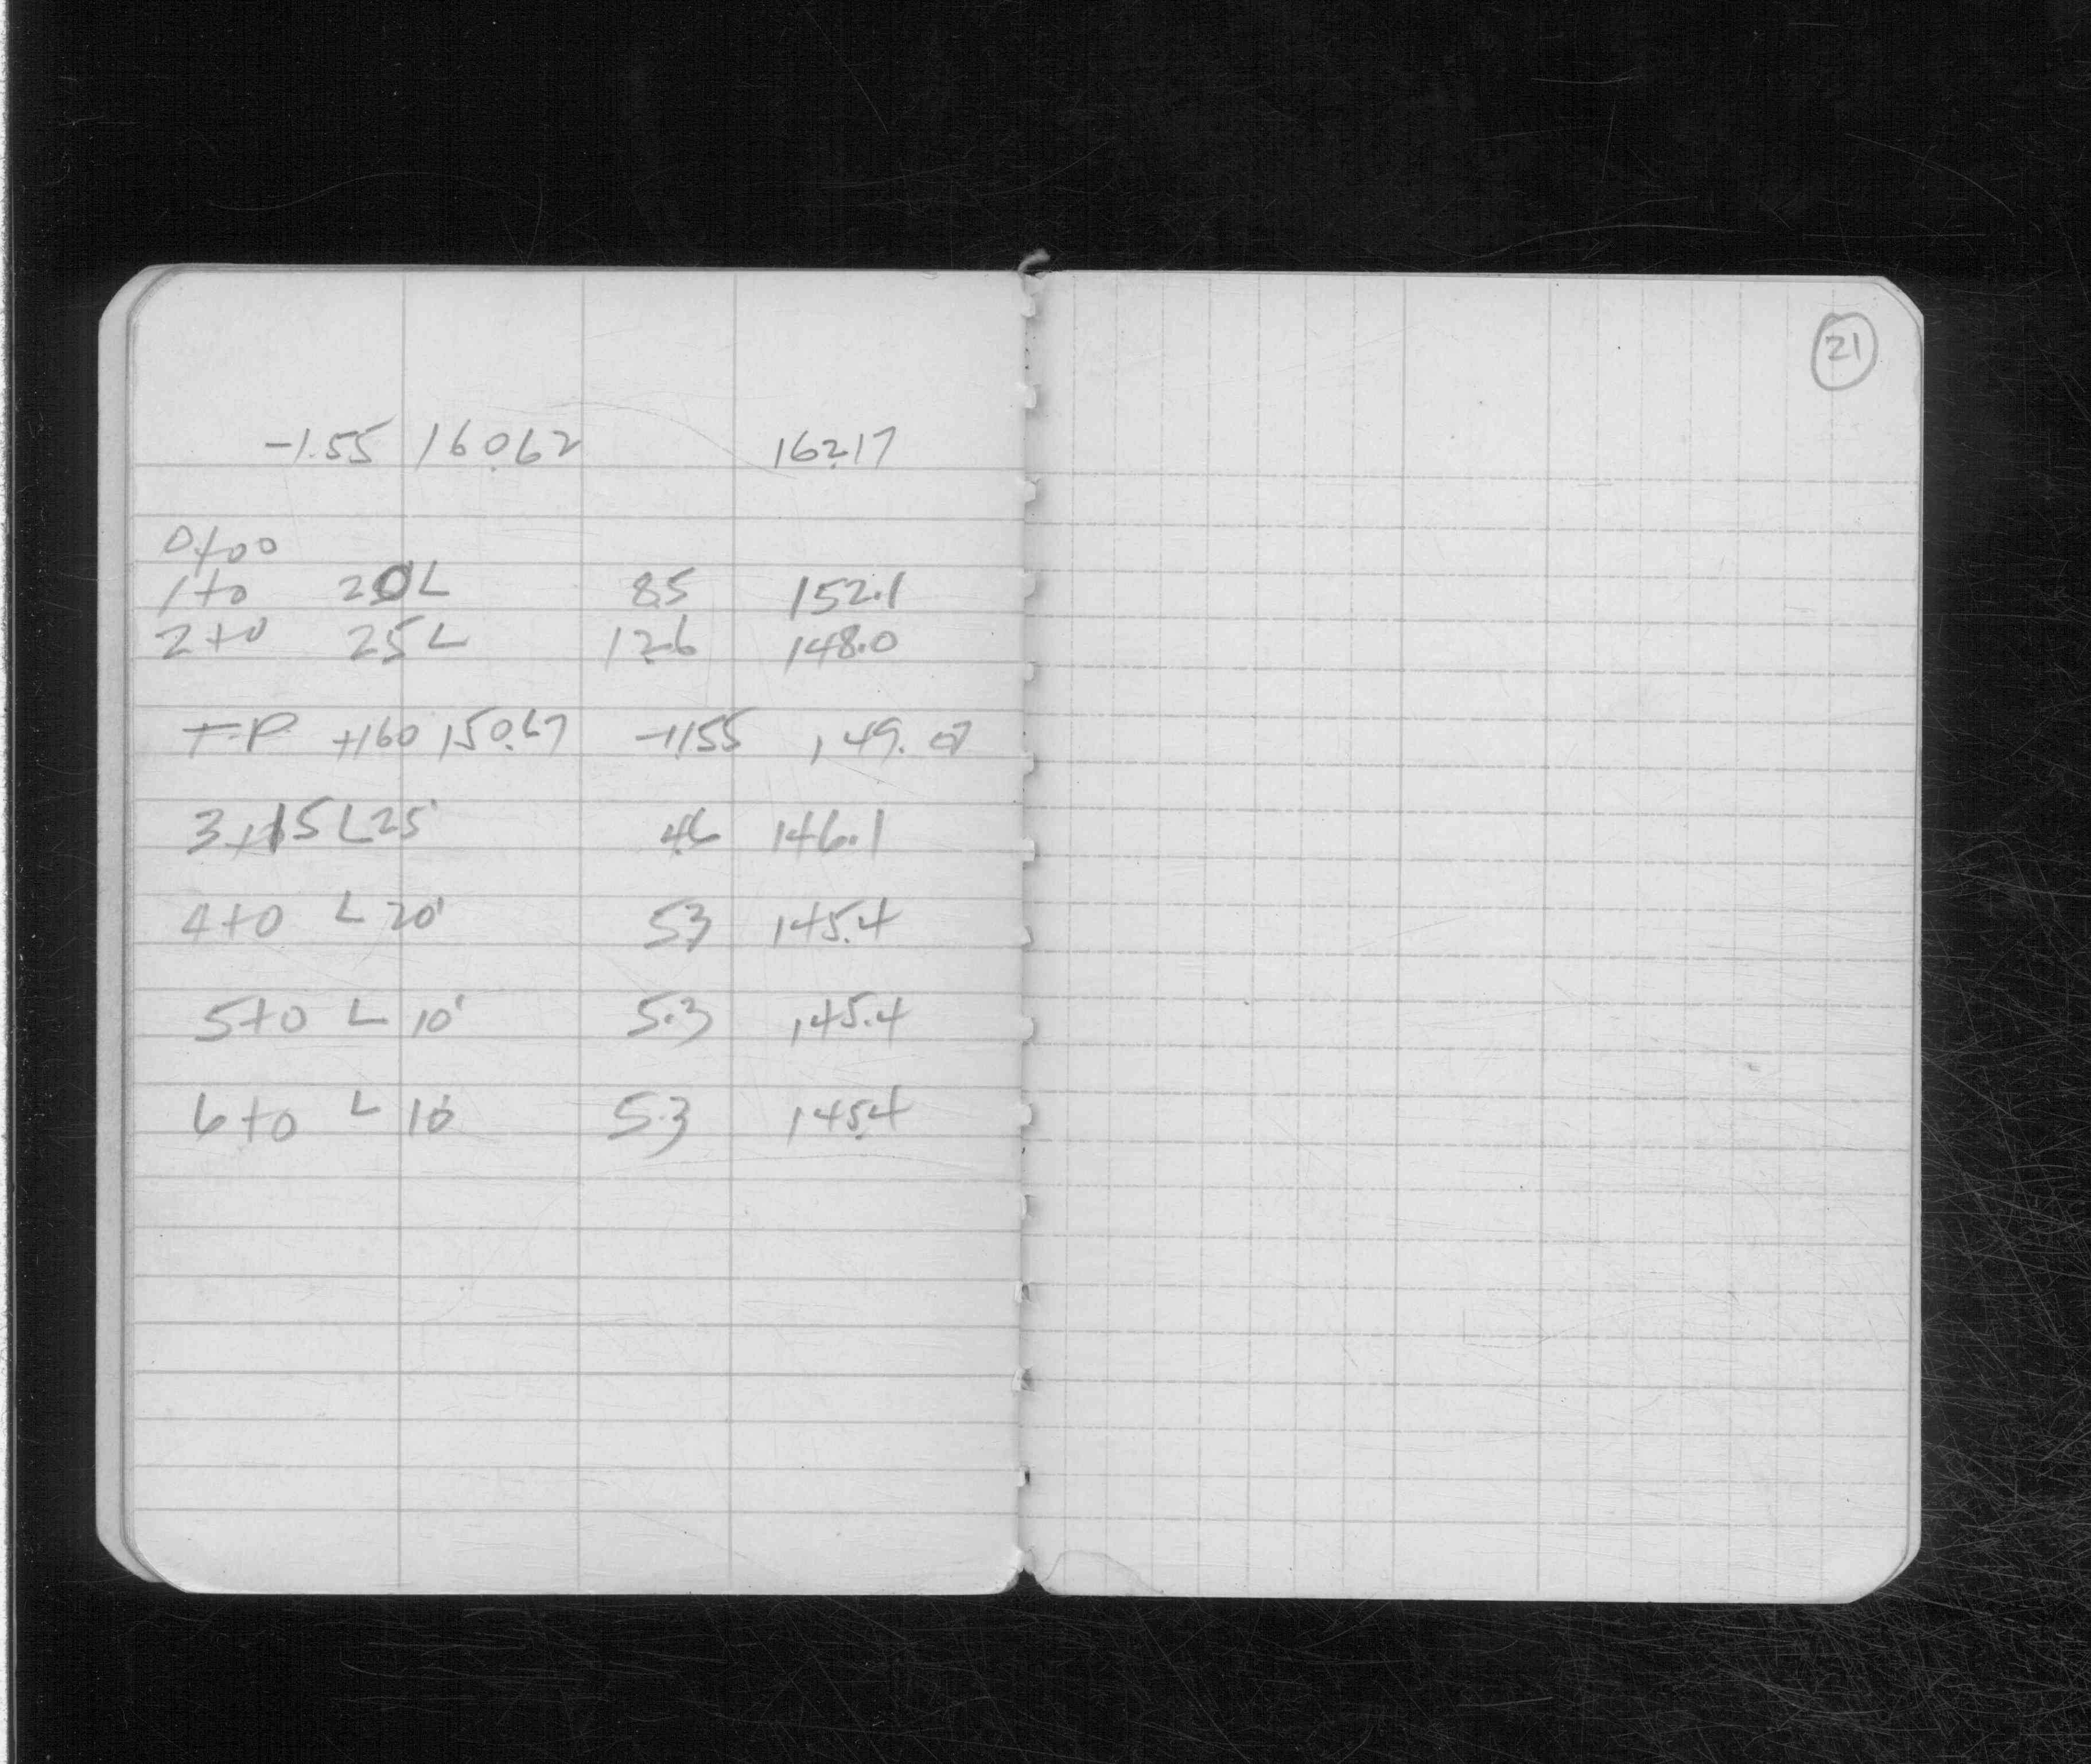 21
-1.55 160.62 162.17
0+00
1+0 20L 8.5 152.1
2+0 25L 12.6 148.0
T.P. +1.60 150.67 -11.55 149.07
3+15 L25' 4.6 146.1
4+0 L 20' 5.3 145.4
5+0 L 10' 5.3 145.4
6+0 L 10' 5.3 145.4